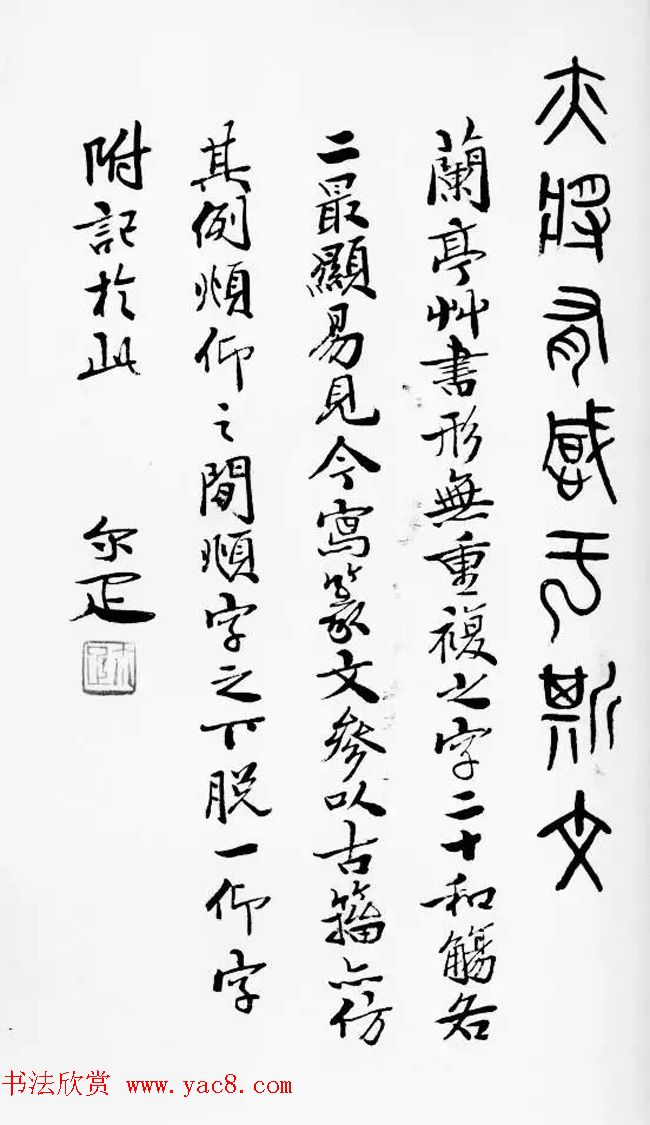 亦將有感于斯文
蘭亭艸書形無重複之字二十和觴各
二最顯易見今寫篆文參以古籀亦仿
其例頫仰之間頫字之下脫一仰字
附記於此 尒疋
书法欣赏 www.yac8.com